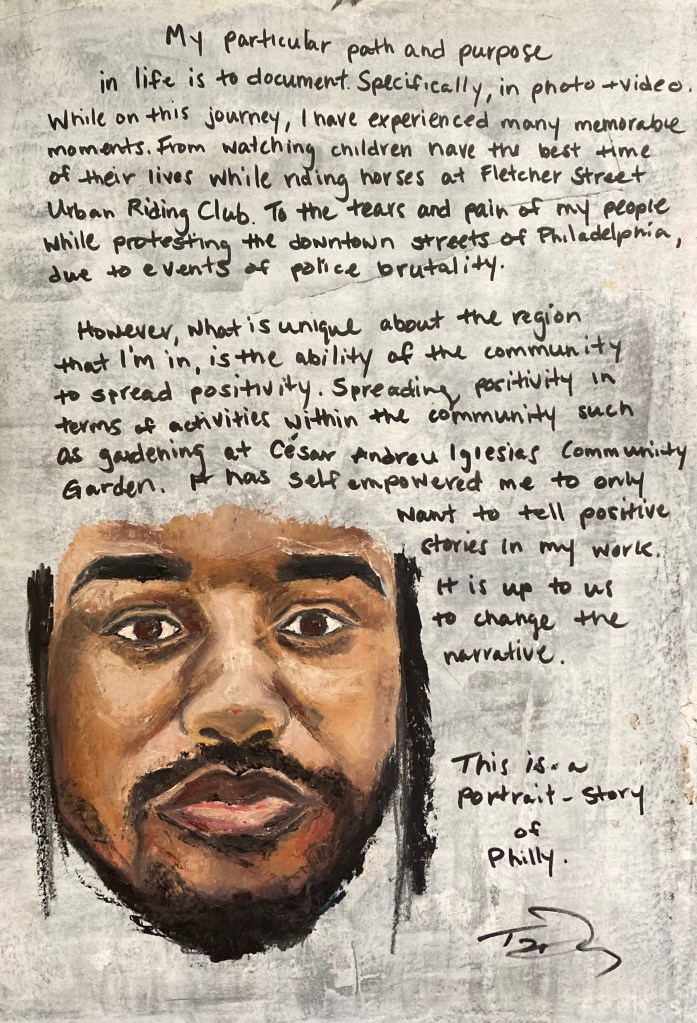 My particular path and purpose
in life is to document. Specifically, in photo + video.
While on this journey, I have experienced many memorable
moments. From watching children have the best time
of their lives while riding horses at Fletcher Street
Urban Riding Club. To the tears and pain of my people
while protesting the downtown streets of Philadelphia,
due to events of police brutality.
However, what is unique about the region
that I'm in, is the ability of the community
to spread positivity. Spreading positivity in
terms of activities within the community such
as gardening at César Andreu Iglesias Community
Garden. It has self empowered me to only
want to tell positive
stories in my work.
It is up to us
to change the
narrative.
This is a
portrait-story
of
Philly.